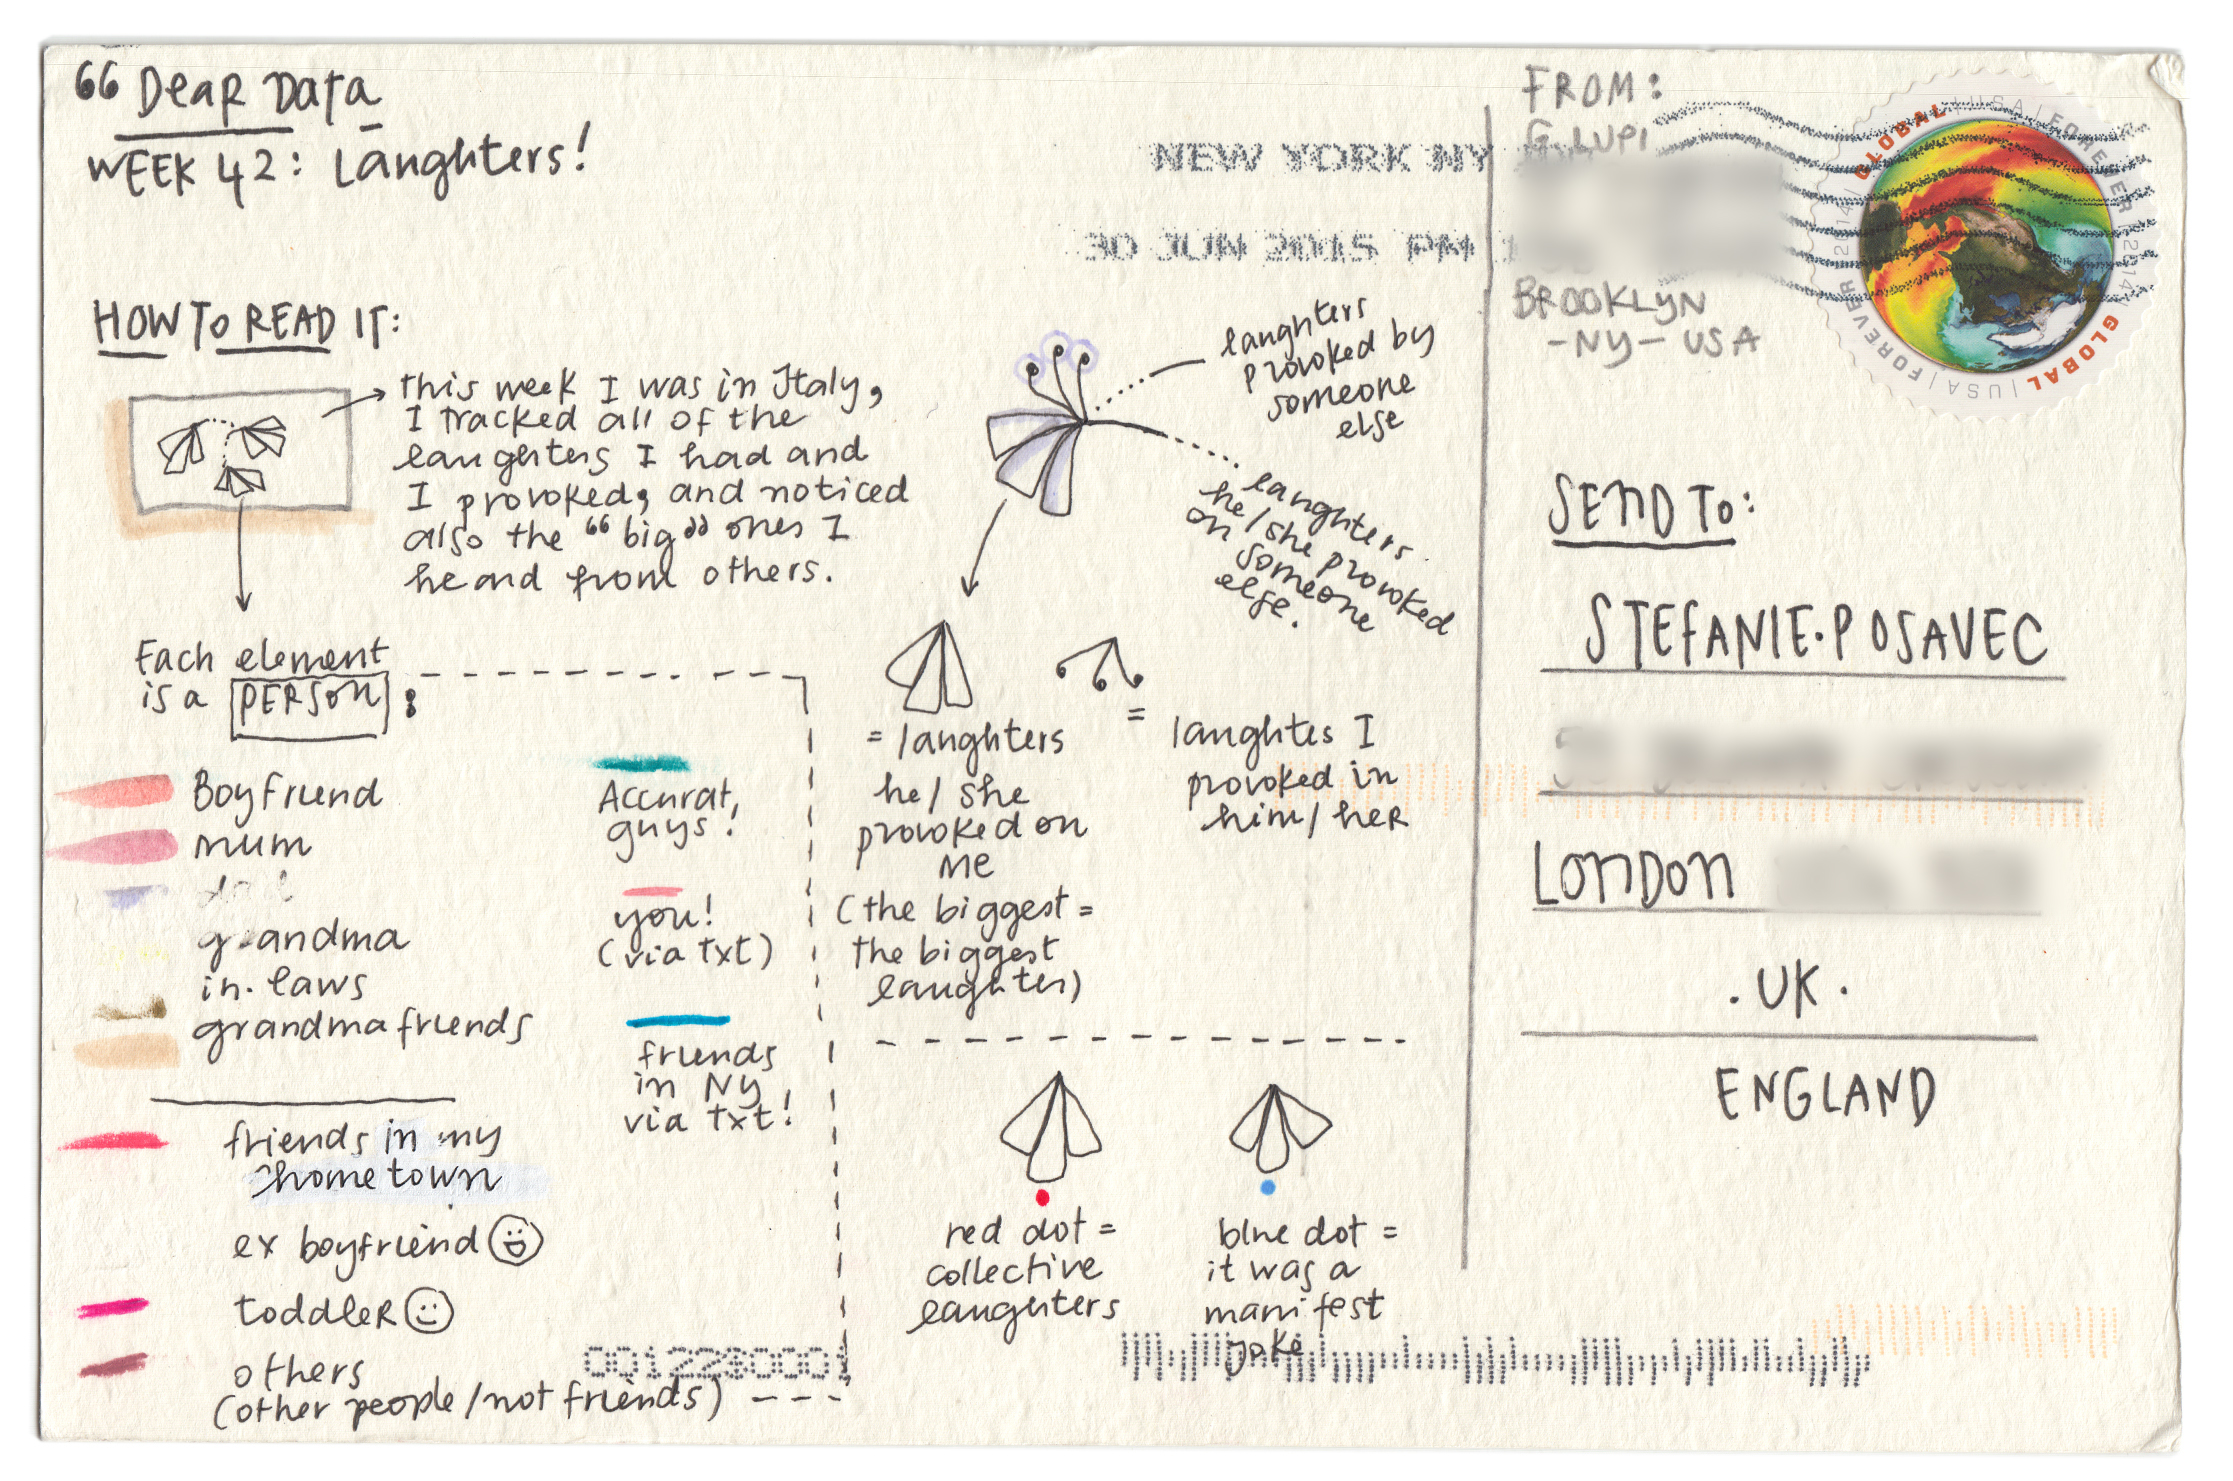 “ Dear Data
WEEK 42: Laughters!
HOW TO READ IT:
this week I was in Italy,
I tracked all of the
laughters I had and
I provoked, and noticed
also the “big” ones I
heard from others.
Each element
is a PERSON:
Boyfriend
mum
grandma
in-laws
grandma friends
friends in my
hometown
ex boyfriend
toddler
others
(other people/not friends)
Accurat,
guys!
you!
(via txt)
friends
in NY
via txt!
laughters
provoked by
someone
else
laughters
he/she provoked
on someone
else.
= laughters
he/she
provoked on
me
(the biggest =
the biggest
laughter)
= laughtes I
provoked in
him/her
red dot =
collective
laughters
blue dot =
it was a
manifest
yoke
NEW YORK NY
30 JUN 2015 PM 1
FROM:
G. LUPI
BROOKLYN
-NY- USA
GLOBAL | USA | FOREVER | 2014 | GLOBAL | USA | FOREVER | 2014 |
SEND TO:
STEFANIE·POSAVEC
LONDON
·UK·
ENGLAND